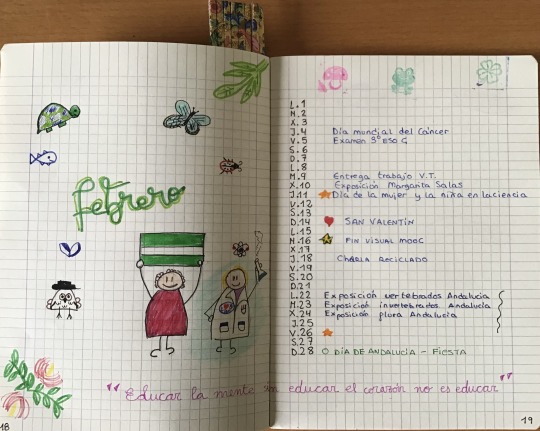 Febrero
18
L.1
M.2
X.3
J.4 Día mundial del Cáncer
V.5 Examen 3º ESO G
S.6
D.7
L.8
M.9 Entrega trabajo V.T.
X.10 Exposición Margarita Salas
J.11 Día de la mujer y la niña en la ciencia
V.12
S.13
D.14 SAN VALENTÍN
L.15
M.16 FIN VISUAL MOOC
X.17
J.18 CHARLA RECICLADO
V.19
S.20
D.21
L.22 Exposición vertebrados Andalucía
M.23 Exposición invertebrados Andalucía
X.24 Exposición flora Andalucía
J.25
V.26
S.27
D.28 O DÍA DE ANDALUCÍA - FIESTA
"Educar la mente sin educar el corazón no es educar"
19